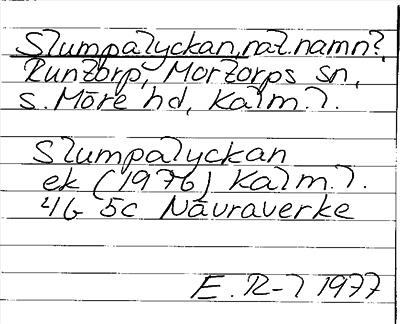 Slumpalyckan, nat.namn?,
Runtorp, Mortorps sn,
S. Möre hd, Kalm. l.
Slumpalyckan
ek (1976) Kalm. l.
4G 5c Nävraverke
E. R-l 1977